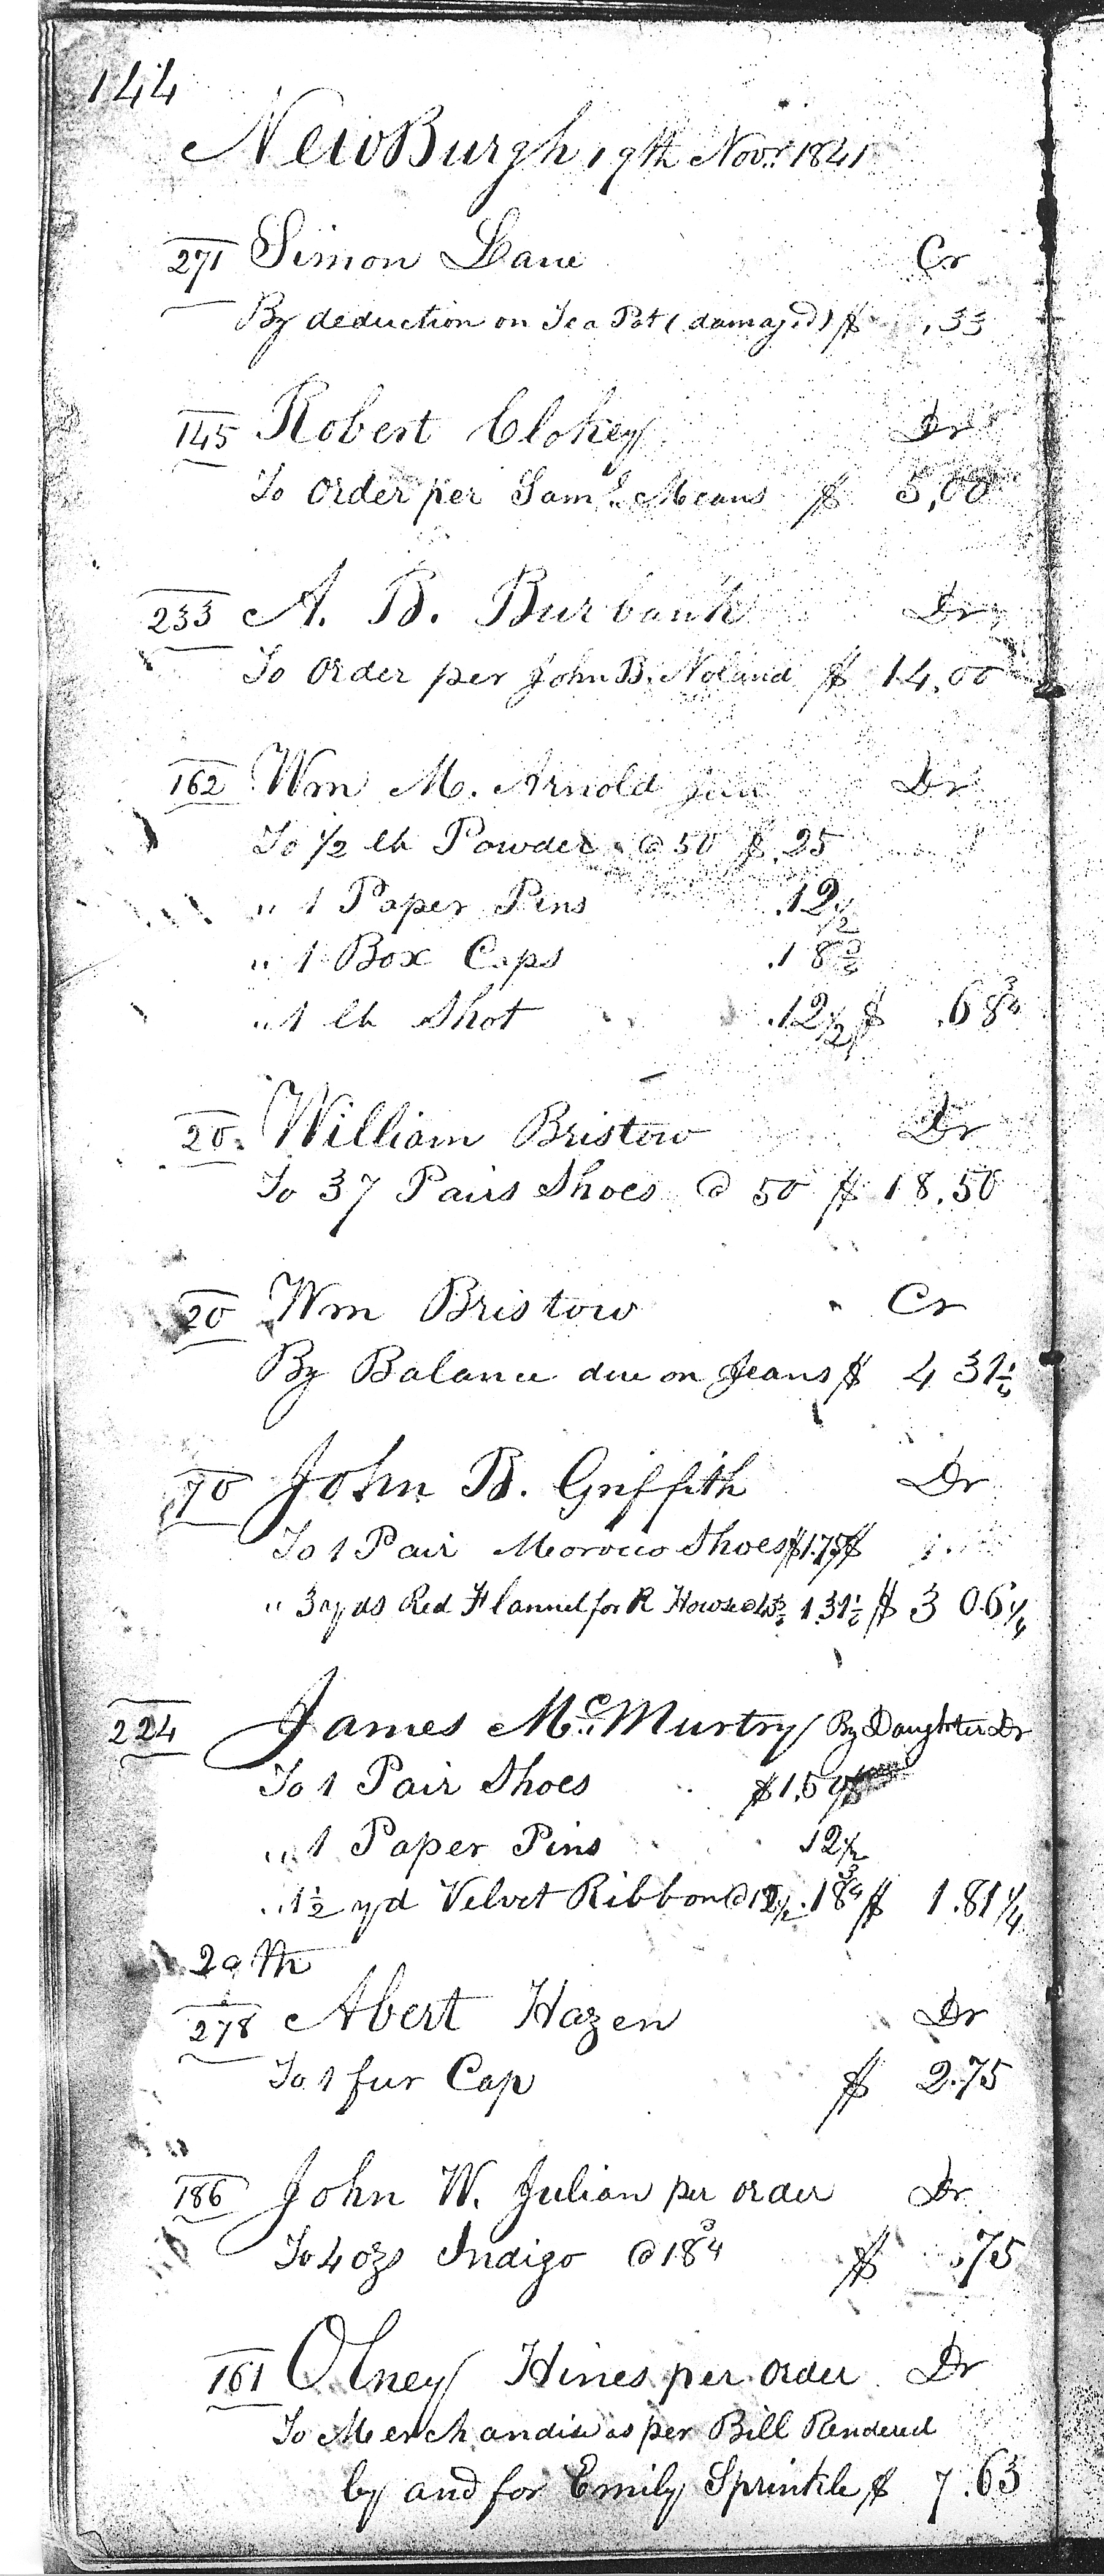 144
NewBurgh 19th Novr. 1841
271 Simon Lane Cr
By deduction on Tea Pot (damaged) $ .33
145 Robert Clokey Dr
To Order per Saml. Means $ 5,00
233 A. B. Burbank Dr
To Order per John B. Noland $ 14.00
162 Wm M. Arnold Dr
To 1/2 lb Powder @ 50 $ .25
" 1 Paper Pins .12 1/2
" 1 Box Caps .18 3/4
" 1 lb Shot .12 1/2 $ .68 3/4
20. William Bristow Dr
To 37 Pairs Shoes @ 50 $ 18.50
20 Wm Bristow Cr
By Balance due on Jeans $ 4 31 1/2
70 John B. Griffith Dr
To 1 Pair Morocco Shoes $1.75 $
" 3 yds Red Flannel for R House @ 1.31 1/2 $ 3 06 1/4
224 James Mc. Murtry By Daughter Dr
To 1 Pair Shoes $1.50
" 1 Paper Pins 12 1/2
" 1 1/2 yd Velvet Ribbon @ 12 1/2 .18 3/4 $ 1.81 1/4
20th
278 Abert Hazen Dr
To 1 fur Cap $ 2.75
186 John W. Julian per order Dr
To 4 ozs Indigo @ 18 3/4 $ .75
161 Olney Hines per order Dr
To Merchandise as per Bill Rendered
by and for Emily Sprinkle $ 7.63